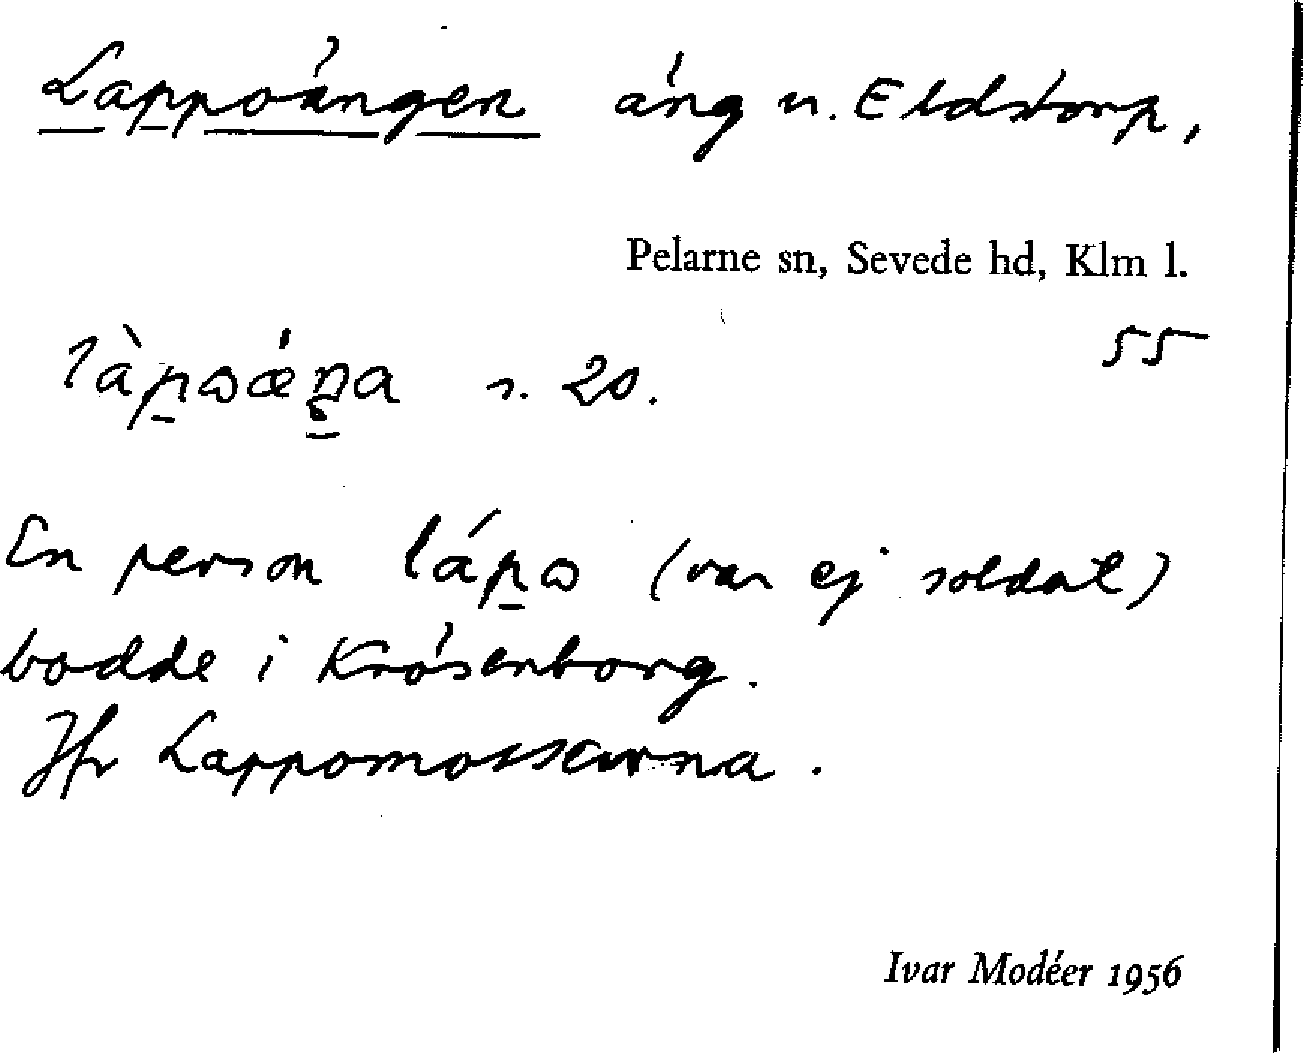 Lappoängen äng u. Eldstorp,
Pelarne sn, Sevede hd, Klm l.
55
làpωǽŋa s. 20.
En person lápω (var ej soldat)
bodde i Krösenborg.
Jfr Lappomossarna.
Ivar Modéer 1956